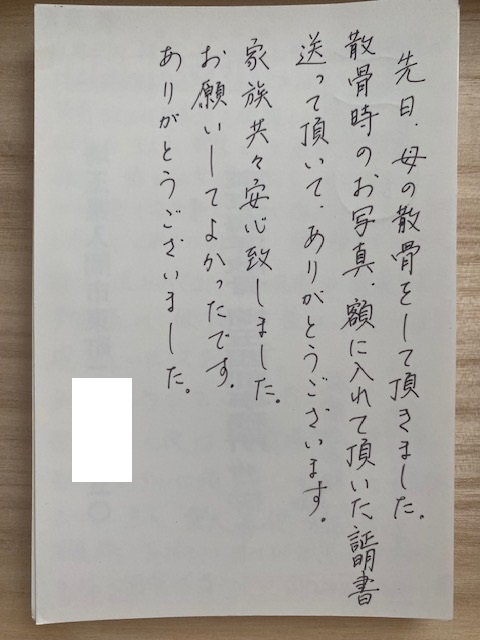 先日、母の散骨をして頂きました。
散骨時のお写真、額に入れて頂いた証明書
送って頂いて、ありがとうございます。
家族共々安心致しました。
お願いしてよかったです。
ありがとうございました。